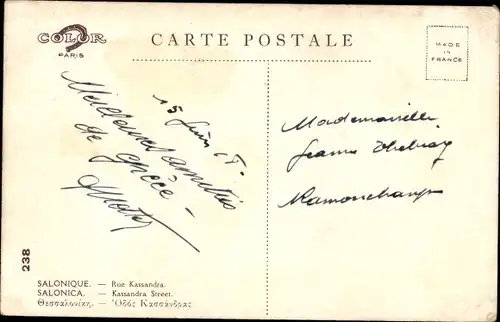 COLOR
PARIS
CARTE POSTALE
MADE
IN
FRANCE
15 Juin 18.
amitiés
de Grèce -
Mademoiselle
Jeanne
Ramonchamp
238
SALONIQUE. — Rue Kassandra.
SALONICA. — Kassandra Street.
Θεσσαλονίκη. — Ὁδὸς Κασσάνδρας